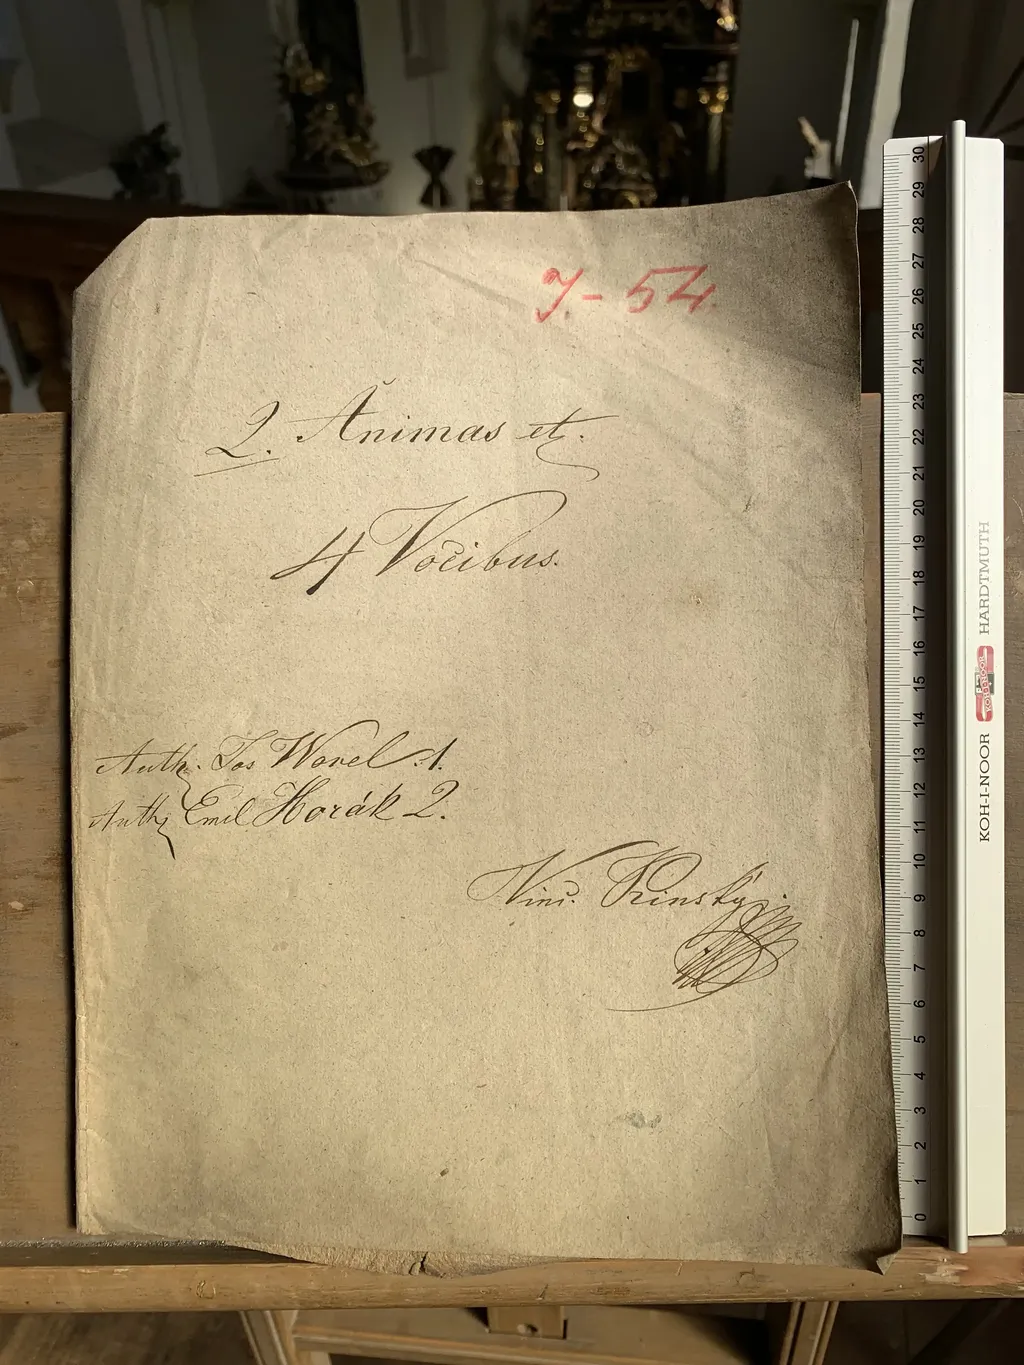 J- 54.
2. Animas et.
4 Vocibus.
Auth. Jos Worel 1.
Auth. Emil Horák 2.
Vinc. Prinský
30
29
28
27
26
25
24
23
22
21
20
19
18
17
16
15
14
13
12
11
10
9
8
7
6
5
4
3
2
1
0
KOH-I-NOOR HARDTMUTH
KOH-I-NOOR